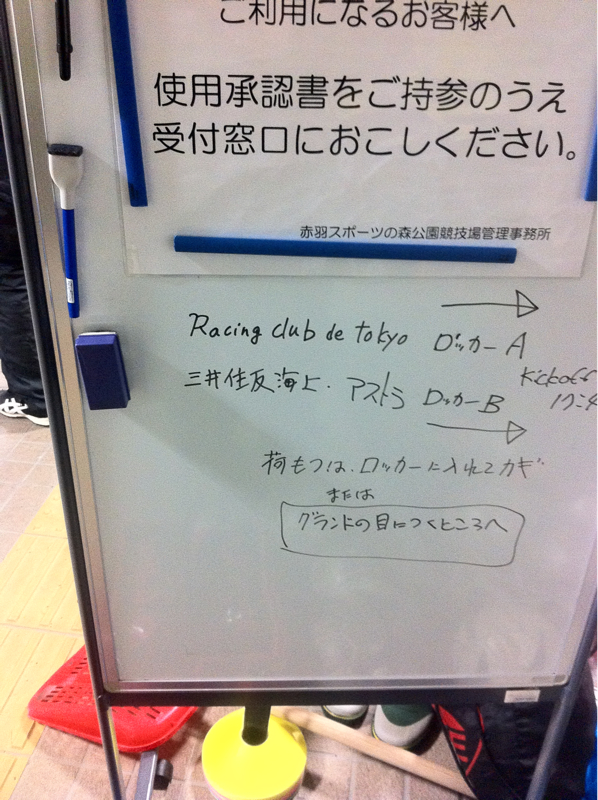 ご利用になるお客様へ
使用承認書をご持参のうえ
受付窓口におこしください。
赤羽スポーツの森公園競技場管理事務所
Racing club de tokyo ロッカー A
三井住友海上. アストラ ロッカー B
Kickoff
荷もつは、ロッカーに入れてカギ
または
グランドの目につくところへ